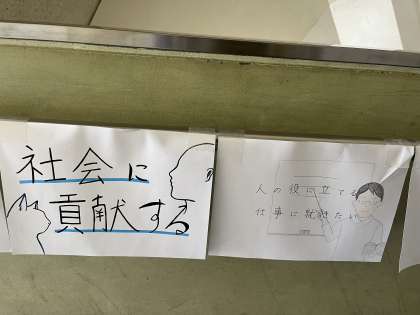 社会に
貢献する
人の役に立てる
仕事に就きたい